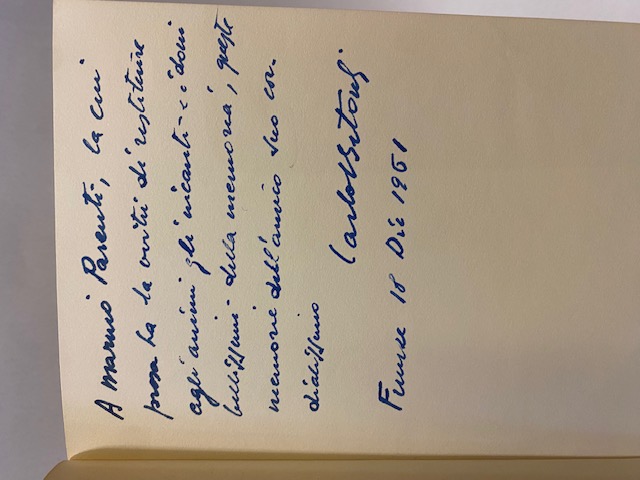 A Marino Parenti, la cui
prosa ha la virtù di restituire
agli animi gli incanti e i doni
bellissimi della memoria, queste
memorie dell'amico suo cor-
dialissimo
Carlo Betocchi
Firenze 18 Dic 1961